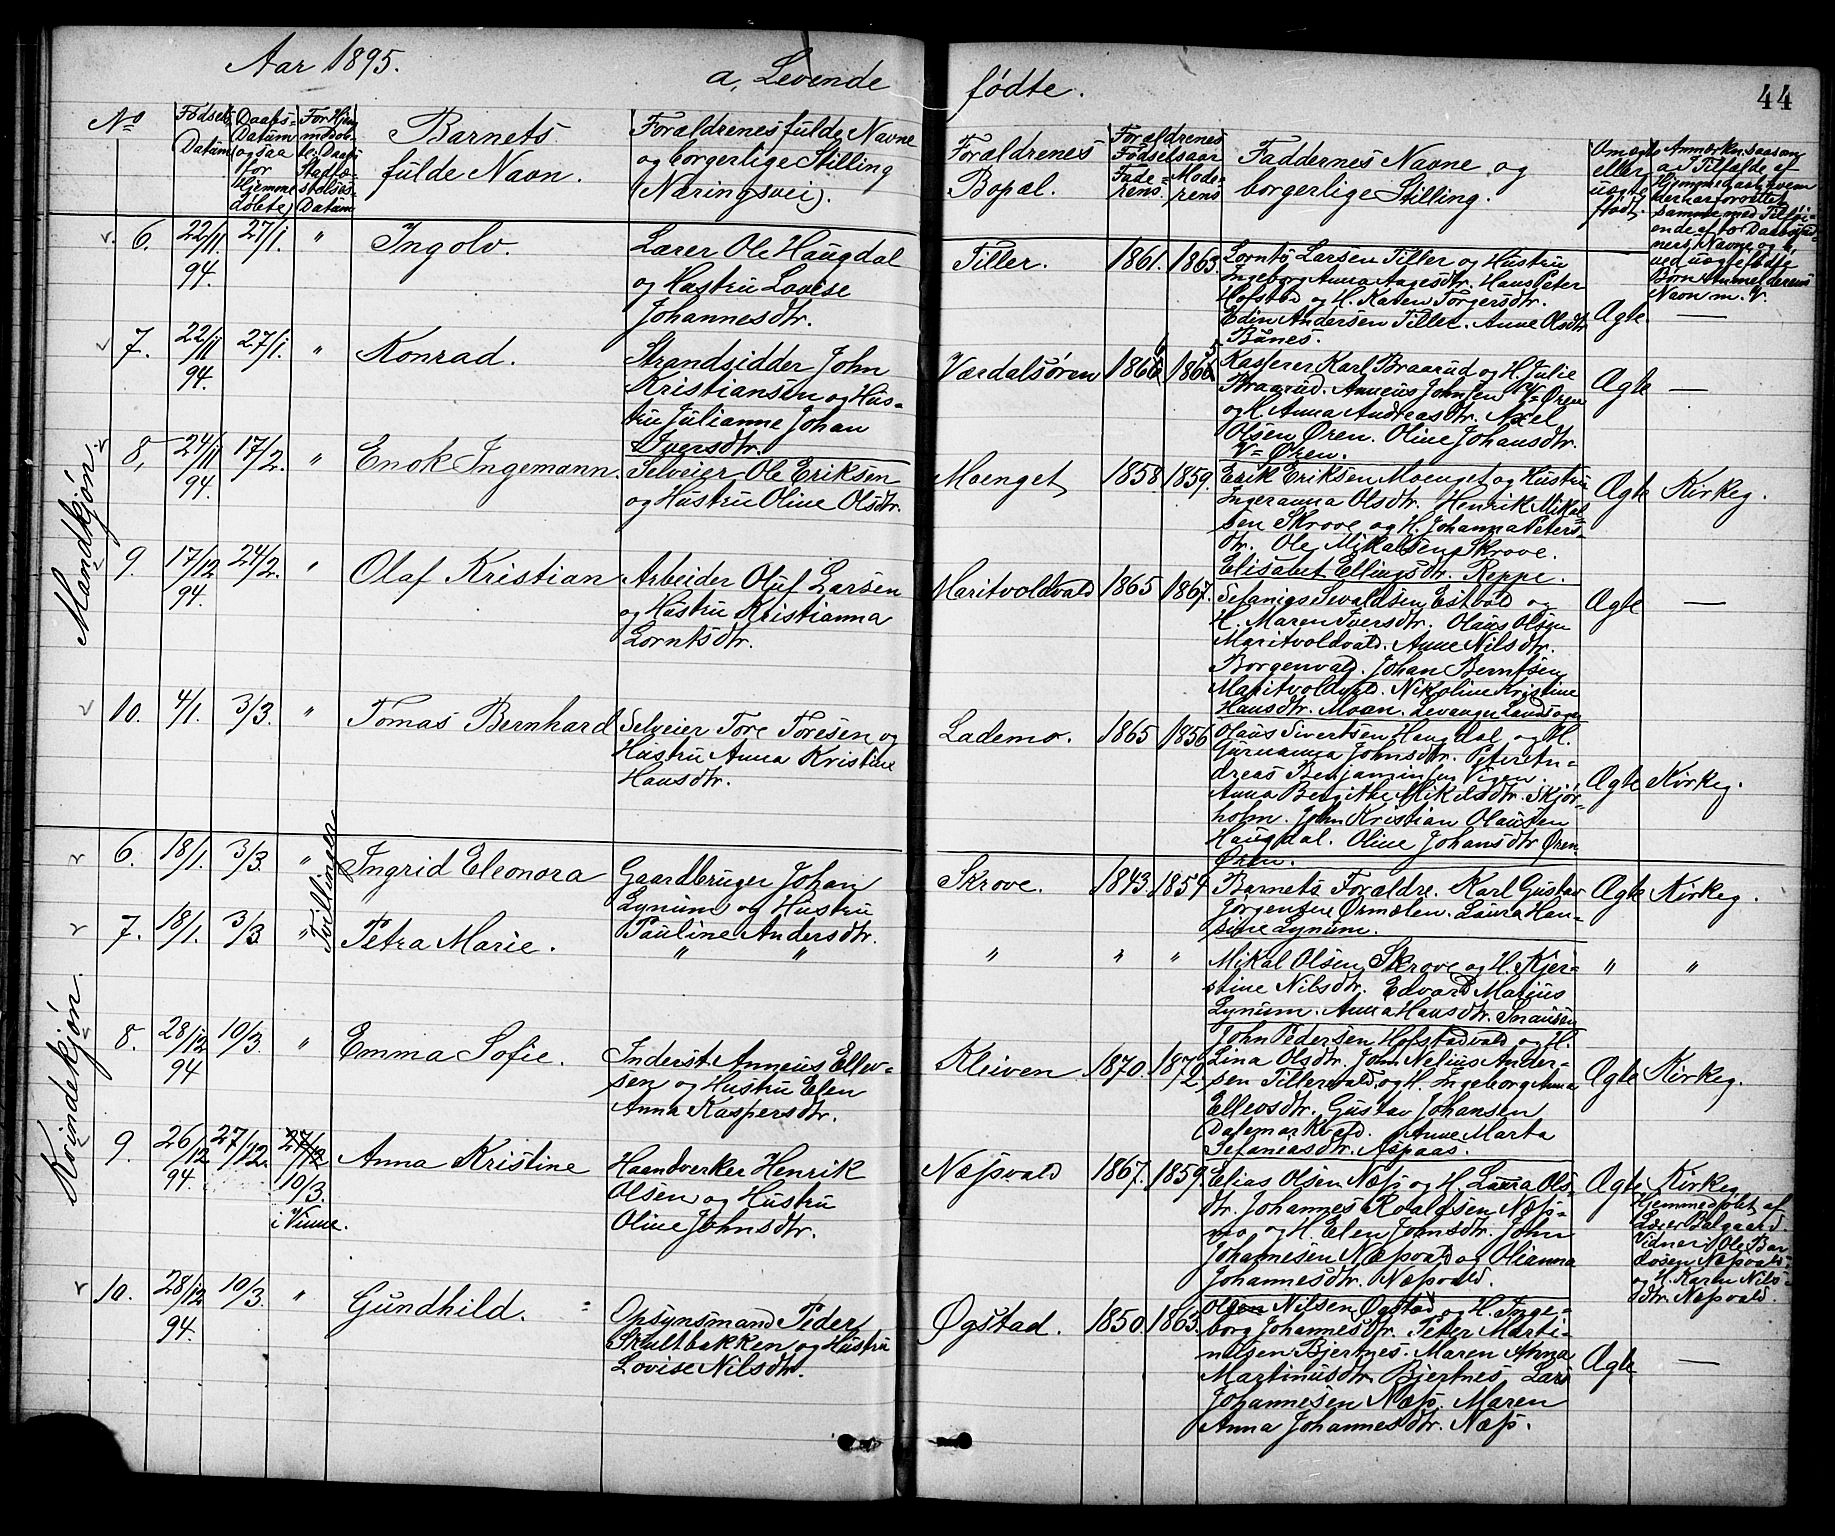 Aar 1895.
a, Levende
fødte.
44
No
Fødsels
Datum
Daabs-
Datum
ogsaa
for
hjemme
døbte
For Hjem
medøb-
te: Daabs
Stadfæ-
stelses
Datum
Barnets
fulde Navn.
Forældrenes fulde Navne
og borgerlige Stilling
(Næringsvei).
Forældrenes
Bopæl.
Forældrenes
Fødselsaar
Fade-
rens
Mode-
rens
Faddernes Navne og
borgerlige Stilling.
Om ægte
eller
uægte
født.
Anmærkn. saasom
a, I Tilfælde af
Hjemmedaab hvem
der har forrettet
samme med Tilføi-
ende af to Daabsvid-
ners Navne og b,
ved uægte fødte
Børn Anmelderens
Navn m. V.
Mandkjøn.
6. 22/11 94. 27/1. " Ingolv.
Lærer Ole Haugdal
og Hustru Lovise
Johannesdtr.
Tiller. 1861. 1863.
Lorntś Larsen Tiller og Hustru
Ingeborg Anna Aagesdtr. Hans Peter
Hofstad og H. Karen Torgersdtr.
Edin Andersen Tiller. Anne Olsdtr
Bönes.
Ægte. —
7. 22/11 94. 27/1. " Konrad.
Strandsidder John
Kristiansen og Hus-
tru Julianne Johan
Iversdtr.
Værdalsøren 1866 1866
Kasserer Karl Braarud og H. Julie
Braarud. Anneus Johnsen V= Øren
og H. Anna Andreasdtr. Axel
Olsen Øren. Oline Johansdtr.
V= Øren.
Ægte —
8, 24/11 94. 17/2. " Enok Ingemann.
Selveier Ole Eriksen
og Hustru Oline Olsdtr.
Moenget 1858. 1859.
Erik Eriksen Moenget og Hustru
Ingeranna Olsdtr. Henrik Mikal-
sen Skrove og H. Johanna Peters-
dtr. Ole Mikalsen Skrove.
Elisabet Ellingsdtr. Reppe.
Ægte Kirkeg.
9. 17/12 94. 24/2. " Olaf Kristian
Arbeider Oluf Larsen
og Hustru Kristianna
Lorntsdtr.
Maritvoldvald 1865 1867.
Sefanias Sivaldsen Estvold og
H. Maren Iversdtr. Olaus Olsen
Maritvoldvald. Anne Nilsdtr.
Borgenvald. Johan Berntsen
Maritvoldvald. Nikoline Kristine
Hansdtr. Moan. Levanger Landsogn
Ægte —
10. 4/1. 3/3. " Tomas Bernhard
Selveier Tore Toresen og
Hustru Anna Kristine
Hansdtr.
Lademo. 1865 1856
Olaus Sivertsen Haugdal og H.
Gurnanna Johnsdtr. Peter An-
dreas Benjaminsen Vigen.
Anna Bergithe Mikalsdtr. Skjør-
holm. John Kristian Olausen
Haugdal. Oline Johansdtr Øren
Øren.
Ægte Kirkeg.
Kvindekjøn.
Tvillinger
6. 18/1. 3/3. " Ingrid Eleonora
Gaardbruger Johan
Lynum og Hustru
Pauline Andersdtr.
Skrove. 1843. 1854
Barnets Forældre. Karl Gustav
Jørgensen Ørmælen. Laura Han-
sine Lynum.
Ægte Kirkeg.
7. 18/1. 3/3. " Petra Marie.
" "
" " "
Mikal Olsen Skrove og H. Kjer-
stine Nilsdtr. Edvard Marius
Lynum. Anna Hansdtr. Snausen
" "
8. 28/12 94 10/3. " Emma Sofie.
Inderst Anneus Ellev-
sen og Hustru Elen
Anna Kaspersdtr.
Kleiven 1870. 1872.
John Pedersen Hofstadvald og H.
Lina Olsdtr. John Nelius Ander-
sen Tillervald og H. Ingeborg Anna
Ellevsdtr. Gustav Johansen
Dalemarkvald. Anne Marta
Sefaniasdtr. Aspaas.
Ægte Kirkeg.
9. 26/12 94. 27/12. 27/12 10/3. i Vinne. Anna Kristine
Haandverker Henrik
Olsen og Hustru
Oline Johnsdtr.
Næssvald 1867. 1859.
Elias Olsen Næss og H. Laura Ols-
dtr. Johannes Roaldsen Næss-
mo og H. Elen Johnsdtr. John
Johannesen Næssvald og Olianna
Johannesdtr. Næssvald.
Ægte Kirkeg
Hjemmedøbt af
Lærer Balgaard
Vidner: Ole Bar
dosen Næssvald
og H. Karen Nils-
dtr. Næssvald.
10. 28/12 94. 10/3. " Gundhild.
Opsynsmand Peder
Skultbakken og Hustru
Lovise Nilsdtr.
Øgstad. 1850 1863.
Olsen Nilsen Øgstad og H. Inge-
borg Johannesdtr. Peter Marti-
nusen Bjertnes. Maren Anna
Martinusdtr. Bjertnes. Lars
Johannesen Næss. Maren
Anna Johannesdtr. Næss.
Ægte —